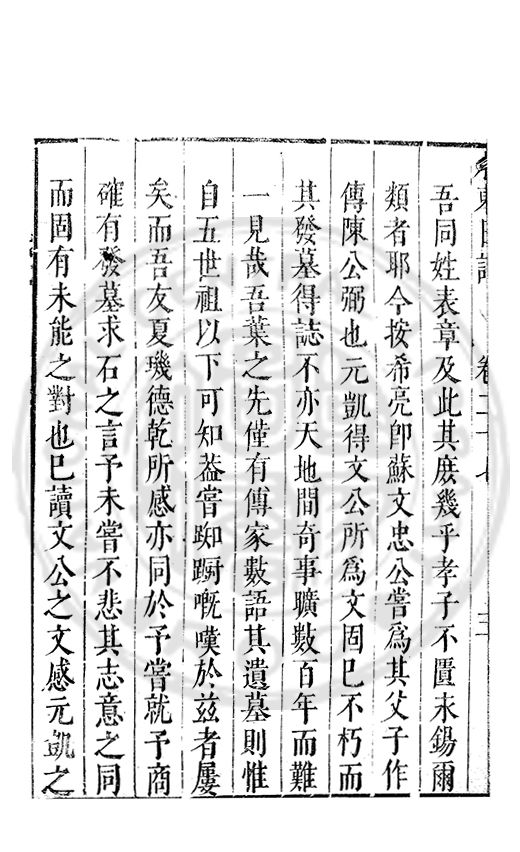 吾同姓表章及此其庶幾乎孝子不匱永錫爾
類者耶今按希亮卽蘇文忠公嘗爲其父子作
傳陳公弼也元凱得文公所爲文固已不朽而
其發墓得誌不亦天地間奇事曠數百年而難
一見哉吾葉之先僅有傳家數語其遺墓則惟
自五世祖以下可知葢嘗踟蹰嘅嘆於兹者屢
矣而吾友夏璣德乾所感亦同於予嘗就予商
確有發墓求石之言予未嘗不悲其志意之同
而固有未能之對也已讀文公之文感元凱之